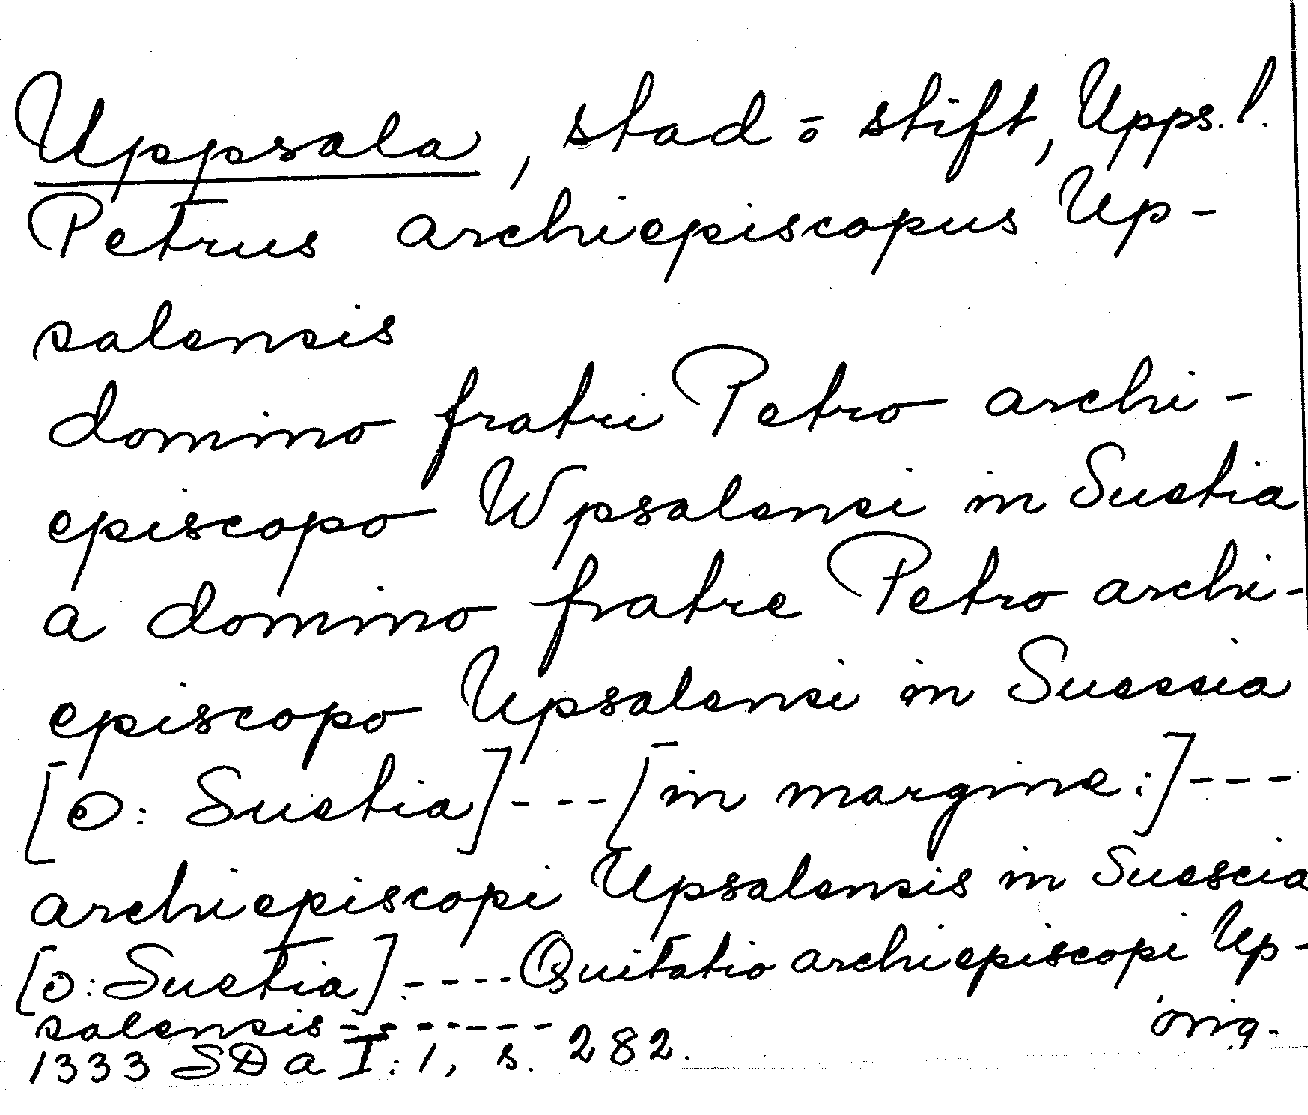 Uppsala, stad o stift, Upps. l.
Petrus archiepiscopus Up-
salensis
domino fratri Petro archi-
episcopo Wpsalensi in Suetia
a domino fratre Petro archi-
episcopo Upsalensi in Suessia
[ɔ: Suetia]---[in margine:]---
archiepiscopi Upsalensis in Suescia
[ɔ: Suetia]----Quitatio archiepiscopi Up-
salensis-------
orig.
1333 SDa I:1, s. 282.